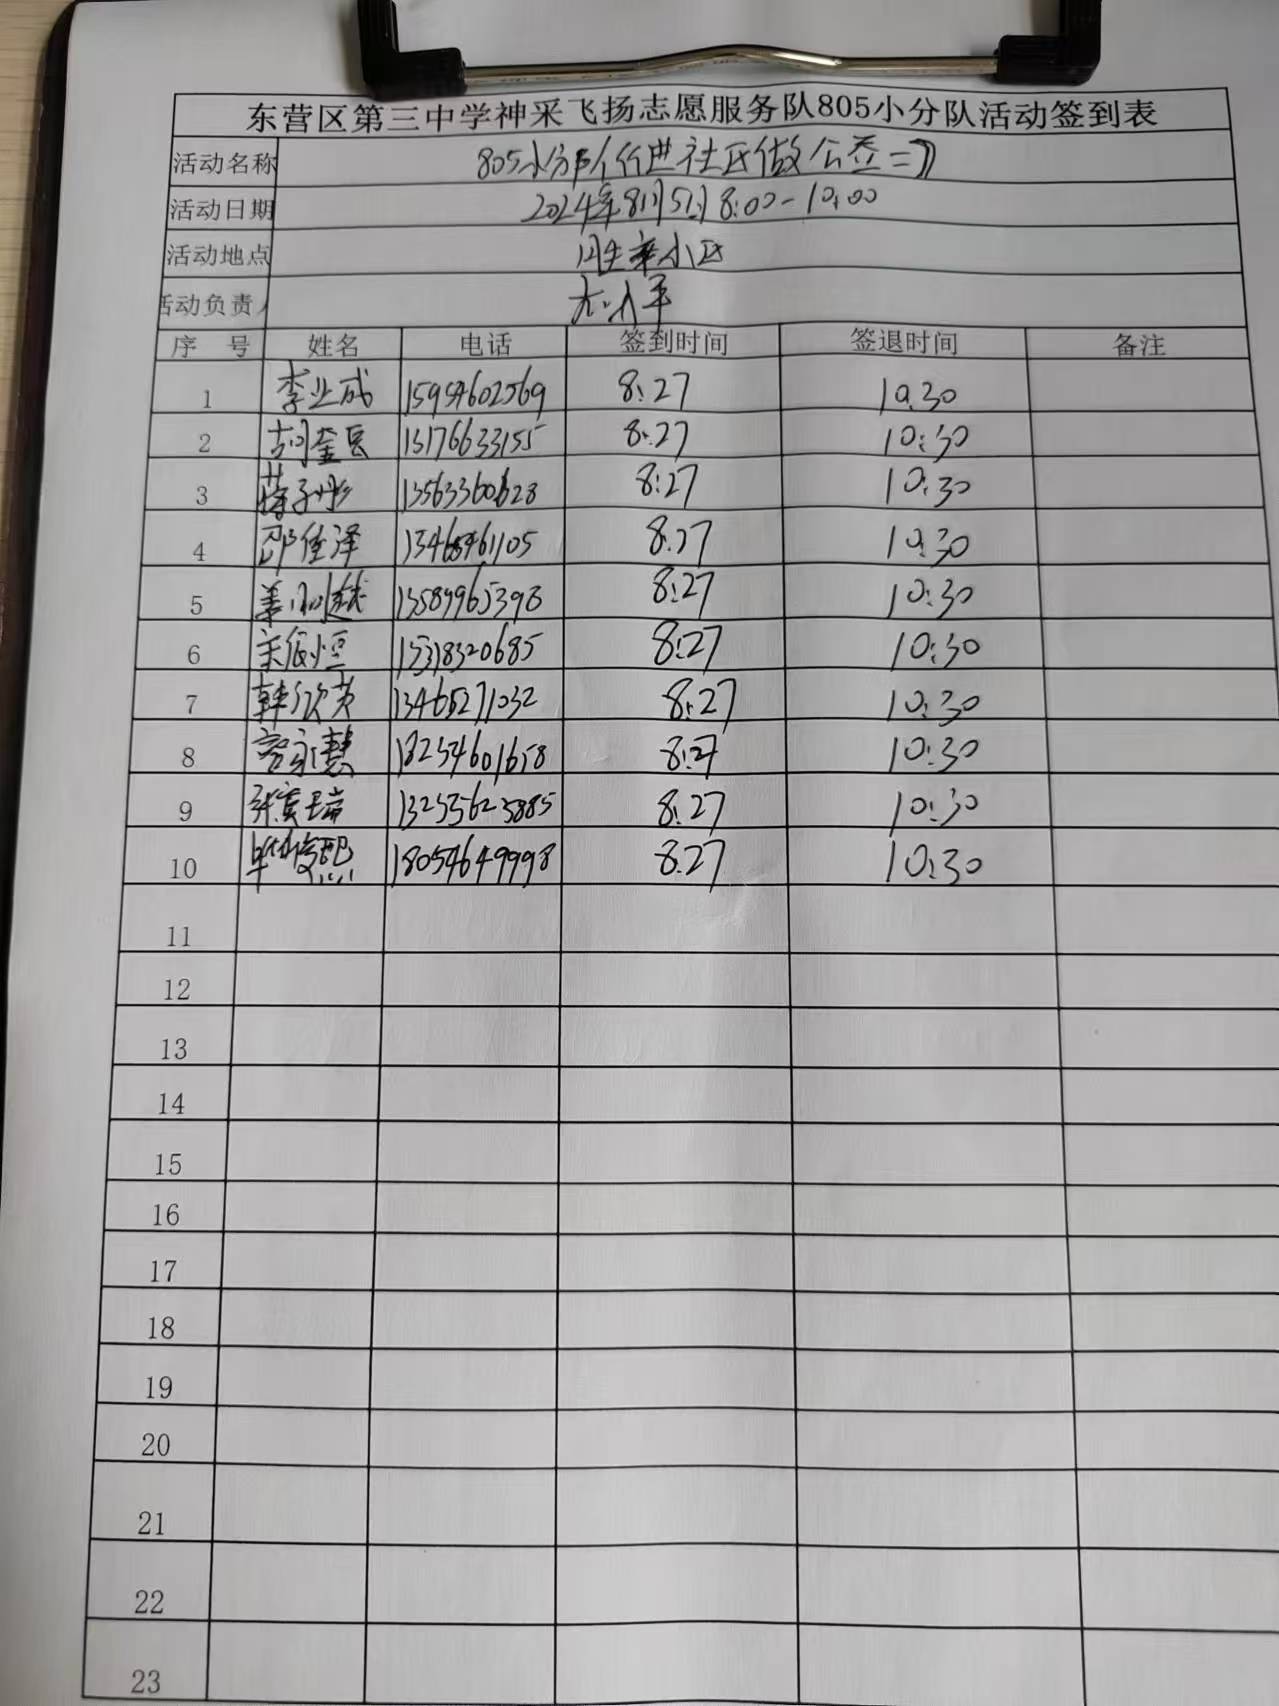 东营区第三中学神采飞扬志愿服务队805小分队活动签到表
活动名称 805小分队行进社区做公益二
活动日期 2024年8月5日 8:00-10:00
活动地点 小区
活动负责人
序号 姓名 电话 签到时间 签退时间 备注
1 李业成 15954602569 8:27 10:30
2 胡奎 13176633155 8:27 10:30
3 蒋子彤 13563360628 8:27 10:30
4 邵佳泽 13468461105 8:27 10:30
5 姜 越 13589965398 8:27 10:30
6 宋辰恒 15318320685 8:27 10:30
7 韩欣芮 13465271032 8:27 10:30
8 永慧 18254601658 8:27 10:30
9 张 瑞 8:27 10:30
10 毕俊熙 18054649998 8:27 10:30
11
12
13
14
15
16
17
18
19
20
21
22
23